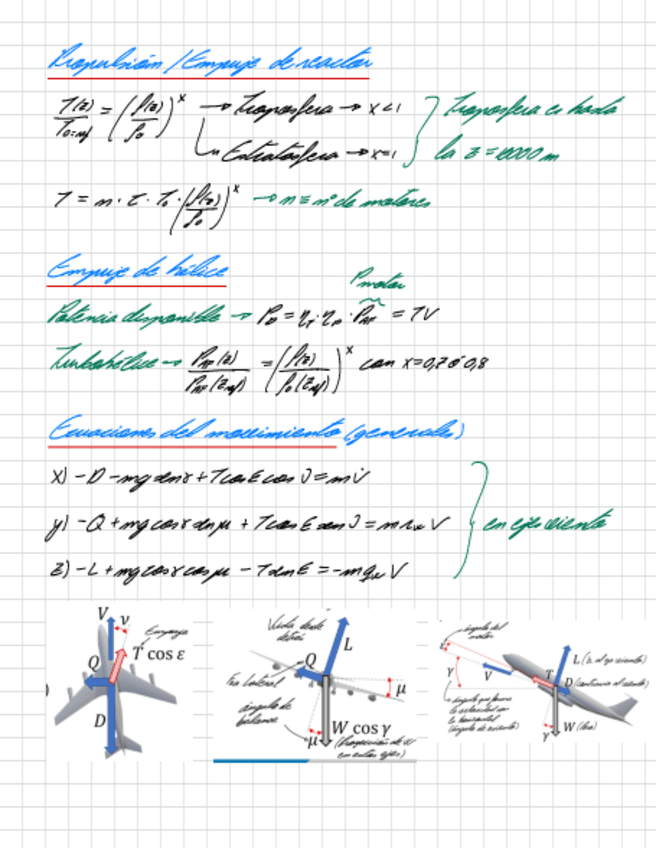 Propulsión / Empuje de reactor
T(z)/T₀=ref = (ρ(z)/ρ₀)^x → Troposfera → x<1 } Troposfera es hasta
↳ Estratosfera → x=1 la z = 11000 m
T = n · τ · T₀ · (ρ(z)/ρ₀)^x → n ≡ nº de motores
Empuje de hélice
P motor
Potencia disponible → P_D = η_r · η_p · P_AF = TV
Turbohélice → P_AF(z)/P_AF(z_ref) = (ρ(z)/ρ₀(z_ref))^x con x=0,7 ó 0,8
Ecuaciones del movimiento (generales)
x) -D - mg senγ + T cos ε cos ν = m V̇
y) -Q + mg cosγ senμ + T cos ε sen ν = m r_w V } en ejes viento
z) -L + mg cosγ cosμ - T sen ε = -m q_w V
V
ν
Empuje
Q
T cos ε
D
Vista desde
detrás
L
Q
Eje lateral
μ
ángulo de
balance
W cos γ
μ
(Proyección de W
en estos ejes)
ángulo del
motor
ε
L (⊥ al eje viento)
γ
V
T
D (contrario al viento)
ángulo que forma
la velocidad con
la horizontal
(ángulo de asiento)
γ
W (kw)